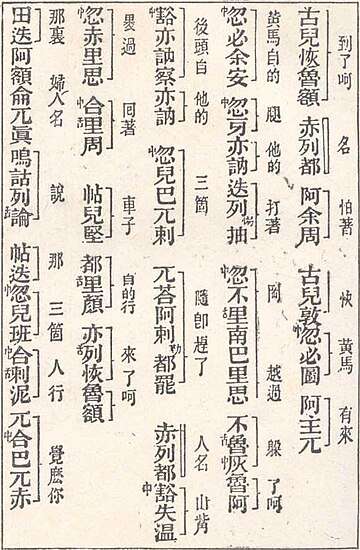 到了呵 名 怕著 快 黃馬 有來
古兒恢魯額 赤列都 阿余周 古兒敦中忽必圖 阿主兀
黃馬自的 腿 他的 打著 岡 越過 躲 了呵
中忽必余安 中忽牙亦訥 迭列勒抽 中忽不舌里南巴里思 不舌魯中灰魯阿
後頭自 他的 三箇 隨即趕了 人名 山觜
中豁亦訥察亦訥 中忽兒巴兀剌 兀荅阿剌勒都罷 赤列都 中豁失温
過 回著 車子 自的行 來了呵
中忽赤里思 中合里周 帖兒堅 都舌里顏 亦列恢魯額
那裏 婦人名 說 那 三箇 人行 覺麽你
田迭 阿額侖兀眞 嗚詁列舌論 帖迭 中忽兒班 中合舌剌泥 兀中合巴兀赤